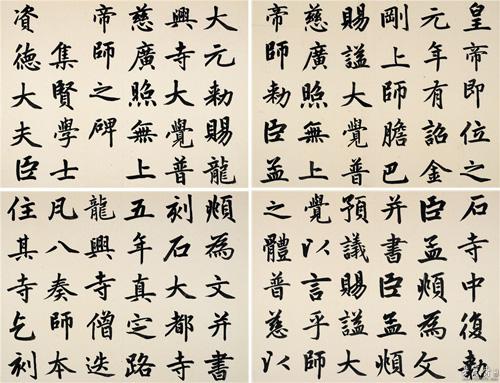 大元勑賜龍
興寺大覺普
慈廣照無上
帝師之碑
集賢學士
資德大夫臣
皇帝即位之
元年有詔金
剛上師膽巴
賜諡大覺普
慈廣照無上
帝師勑臣孟
頫為文并書
刻石大都寺
五年真定路
龍興寺僧迭
凡八奏師本
住其寺乞刻
石寺中復勑
臣孟頫為文
并書臣孟頫
預議賜諡大
覺以言乎師
之體普慈以